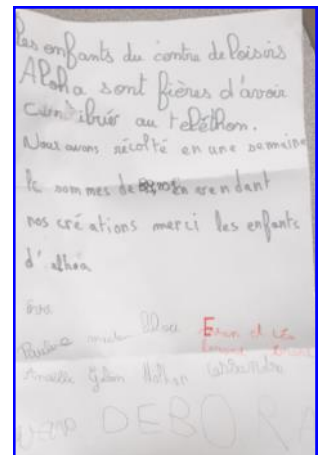 Les enfants du centre de loisirs
Aloha sont fières d'avoir
contribuer au teléthon.
Nous avons récolté en une semaine
la sommes de en vendant
nos créations merci les enfants
d'alhoa
Evan et Léa
Pauline
Armelle Nathan Cassandra
DEBORA